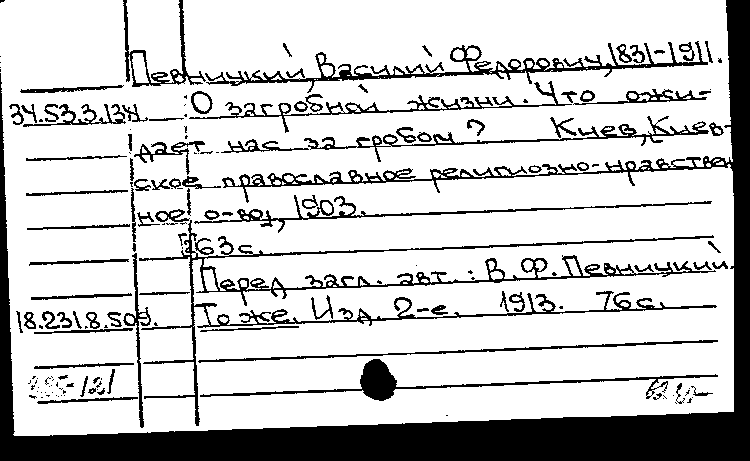 Певницкий, Василий Федорович, 1831-1911.
34.53.3.134. О загробной жизни. Что ожи-
дает нас за гробом? Киев, Киев-
ское православное религиозно-нравствен
ное о-во, 1903.
63 с.
Перед загл. авт.: В.Ф. Певницкий.
18.231.8.509. То же. Изд. 2-е. 1913. 76 с.